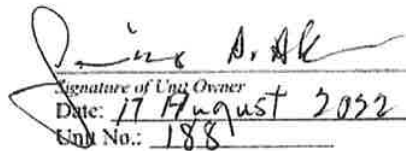 A. Ak
Signature of Unit Owner
Date: 17 August 2022
Unit No.: 188